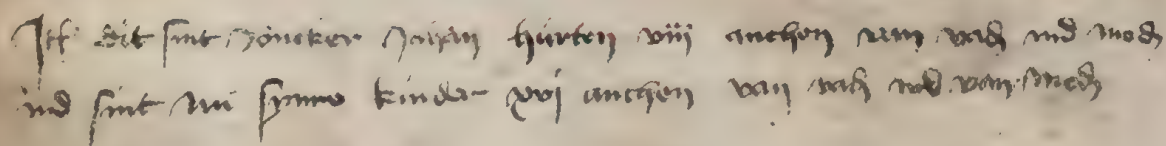 Itē dit sint Joncker Johan hurten viij anchen van vad̄ ind mod̄
ind sint nu synre kinder xvj anchen van vad̄ ind van mod̄